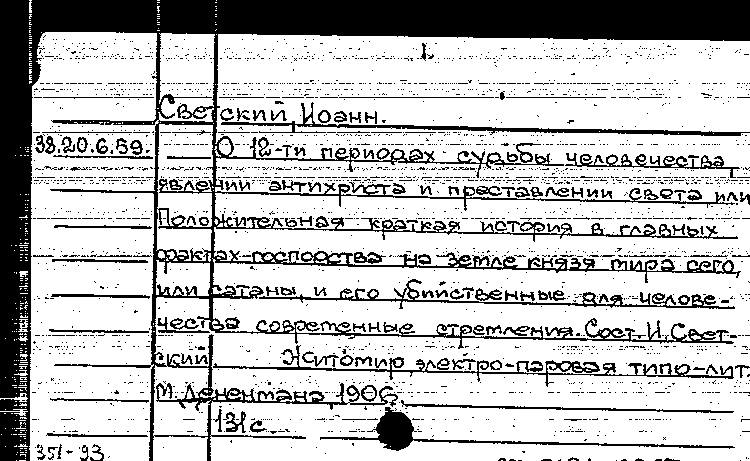 1.
Светский, Иоанн.
38.20.6.59. О 12-ти периодах судьбы человечества,
явлении антихриста и преставлении света или
Положительная краткая история в главных
фактах господства на земле князя мира сего,
или сатаны, и его убийственные для челове-
чества современные стремления. Сост. И. Свет-
ский. Житомир, электро-паровая типо-лит.
М. Дененмана, 1906.
131 с.
351-93